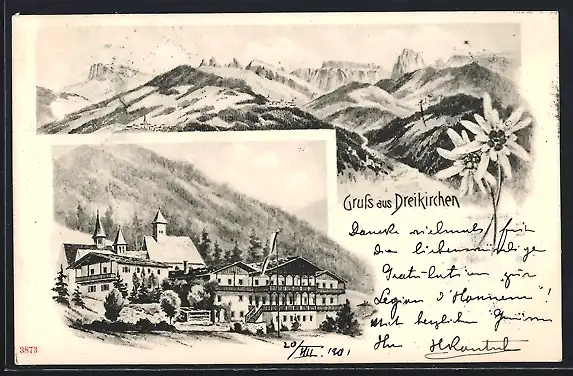 Gruſs aus Dreikirchen
Danke vielmals für
die liebenswürdige
Gratulation zur
Legion d'Honneur!
Mit herzlichen Grüßen
Ihr
20/VII. 1901
3873